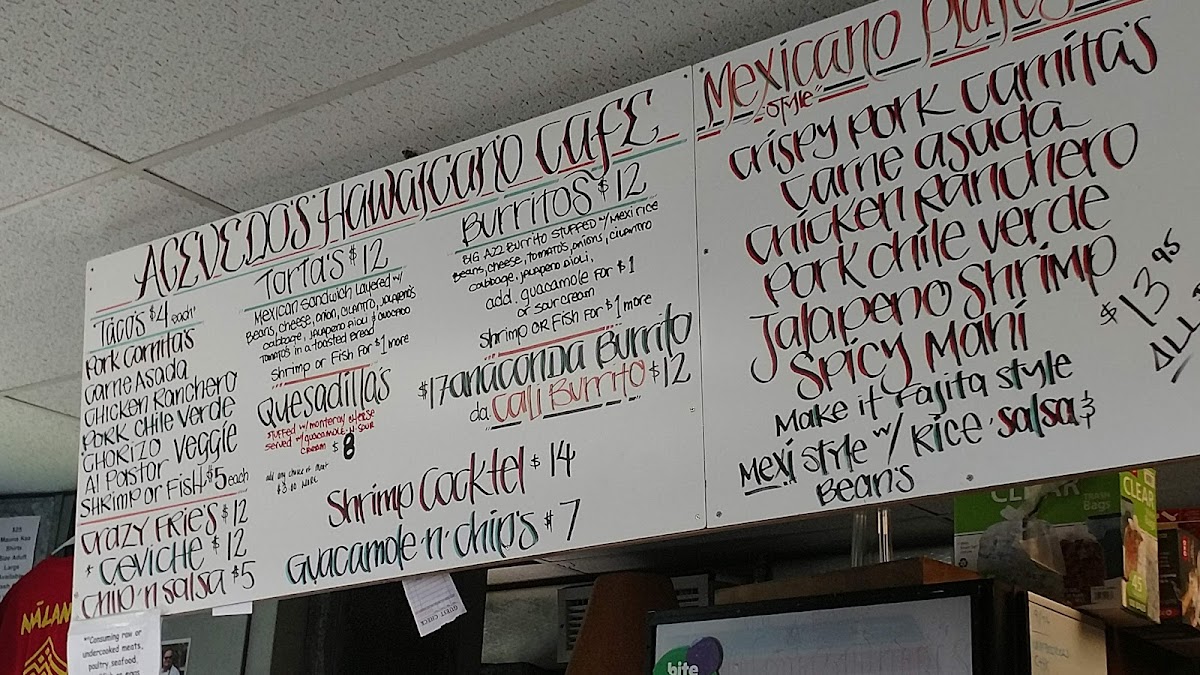 ACEVEDO'S HAWAICANO CAFE
Taco's $4 each
Pork Carnita's
Carne Asada
Chicken Ranchero
Pork Chile Verde
Chorizo Veggie
Al Pastor
Shrimp or Fish $5 each
Crazy Frie's $12
* Ceviche * $12
Chip 'n Salsa $5
Torta's $12
Mexican Sandwich Layered w/
Beans, cheese, onion, cilantro, Jalapeño's
cabbage, Jalapeño Aioli & avocado
Tomato's in a toasted Bread
Shrimp or Fish for $1 more
Quesadilla's
Stuffed w/ monterey cheese
served w/ guacamole-n-sour
cream $8
add any choice of meat
$3.00 more
Burritos $12
BIG AZZ Burrito STUFFED w/ Mexi rice
Beans, cheese, tomato's, onions, cilantro
cabbage, jalapeno aioli,
add guacamole for $1
or sour cream
Shrimp or Fish for $1 more
$17 anaconda Burrito
da Cali Burrito $12
Shrimp Cocktel $14
Guacamole 'n' chip's $7
Mexicano Plates
"STYLE"
Crispy Pork Carnita's
Carne Asada
Chicken Ranchero
Pork Chile Verde
Jalapeno Shrimp
Spicy Mahi
$13.95
ALL
Make it Fajita Style
Mexi Style w/ Rice • Salsa &
Bean's
*Consuming raw or
undercooked meats,
poultry, seafood,
GUEST CHECK
bite
CLEAR
TRASH
Bags
CLEAR
45
NĀLAN
$25
Mauna Kea
Shirts
Size Adult
Large
Available